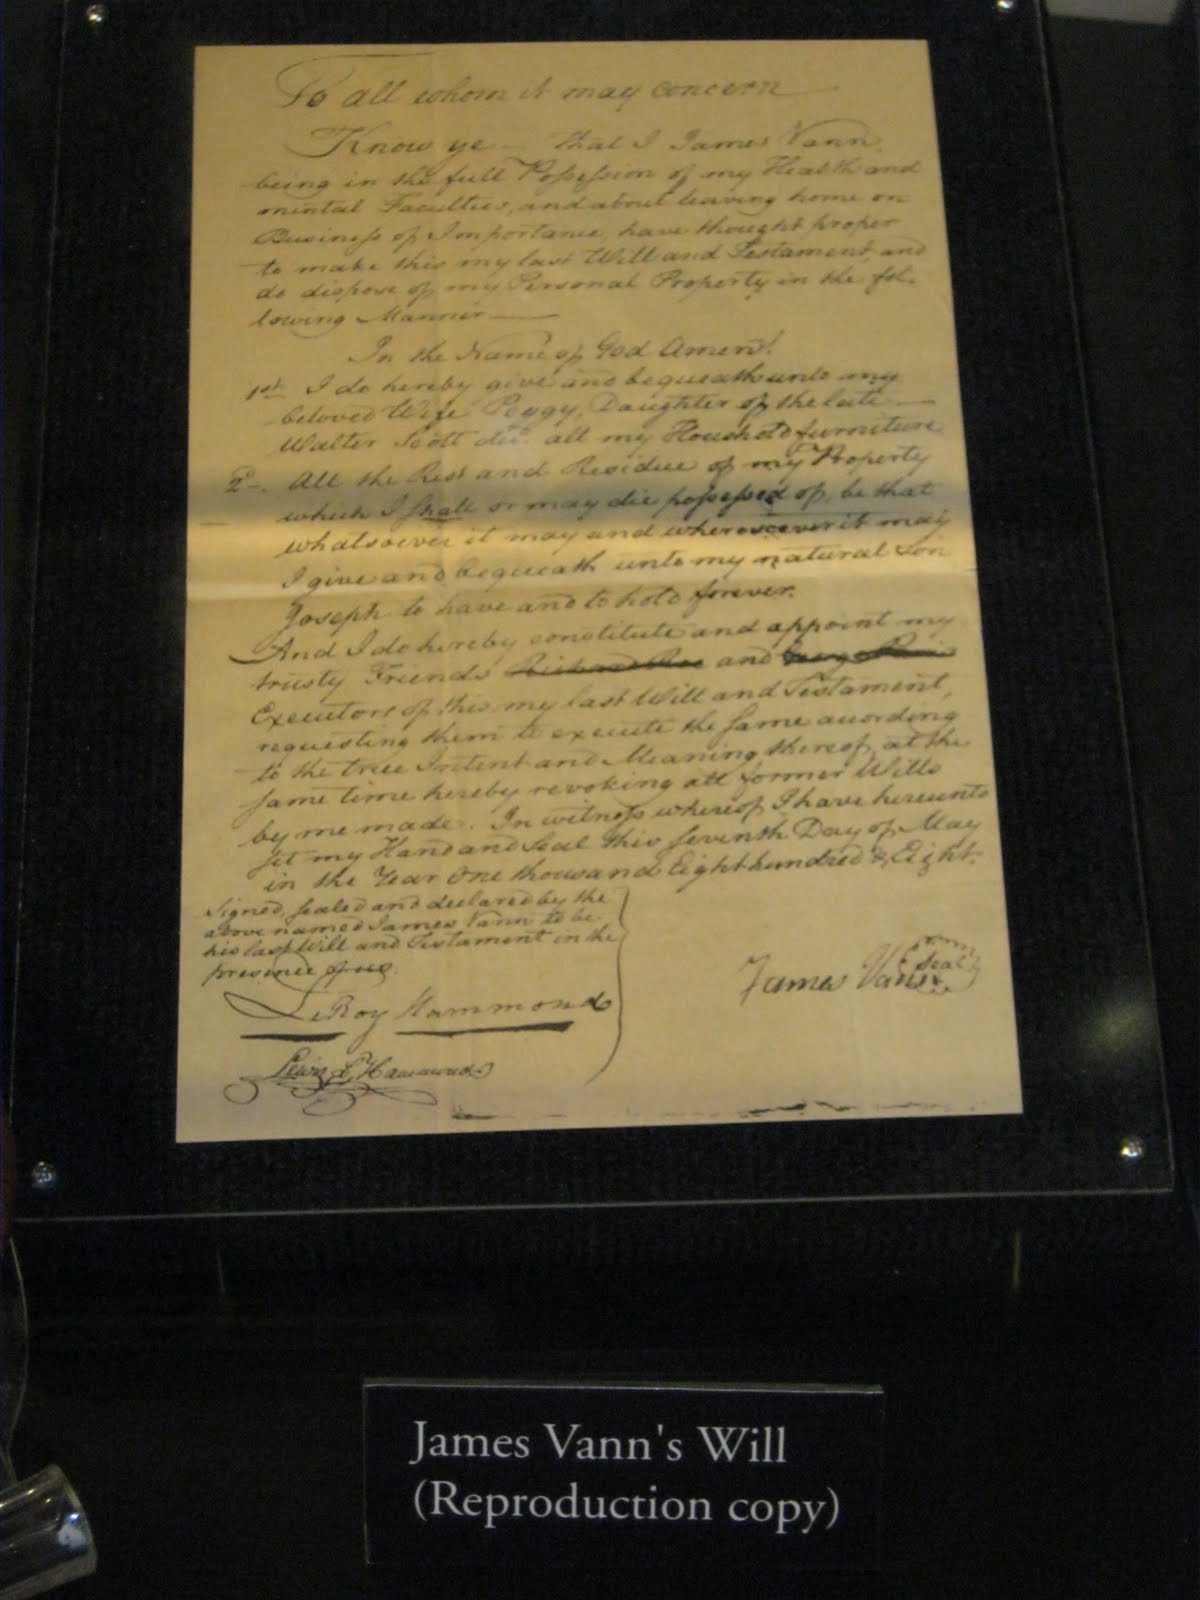 To all whom it may concern
Know ye – that I James Vann
being in the full Possession of my Health and
mental Faculties, and about leaving home on
Business of Importance, have thought proper
to make this my last Will and Testament, and
do dispose of my Personal Property in the fol-
lowing Manner
In the Name of God Amen!
1st I do hereby give and bequeath unto my
beloved Wife Peggy, Daughter of the late
Walter Scott decd. all my Household furniture
2d. All the Rest and Residue of my Property
which I shall or may die possessed of, be that
whatsoever it may and wheresoever it may
I give and bequeath unto my natural Son
Joseph to have and to hold forever.
And I do hereby constitute and appoint my
trusty Friends and
Executors of this my last Will and Testament,
requesting them to execute the same according
to the true Intent and Meaning thereof, at the
same time hereby revoking all former Wills
by me made. In witness whereof I have hereunto
set my Hand and Seal this seventh Day of May
in the Year One thousand Eight hundred & Eight.
Signed, sealed and declared by the
above named James Vann to be
his last Will and Testament in the
presence of us
James Vann Seal
LeRoy Hammond
Hammond
James Vann's Will
(Reproduction copy)